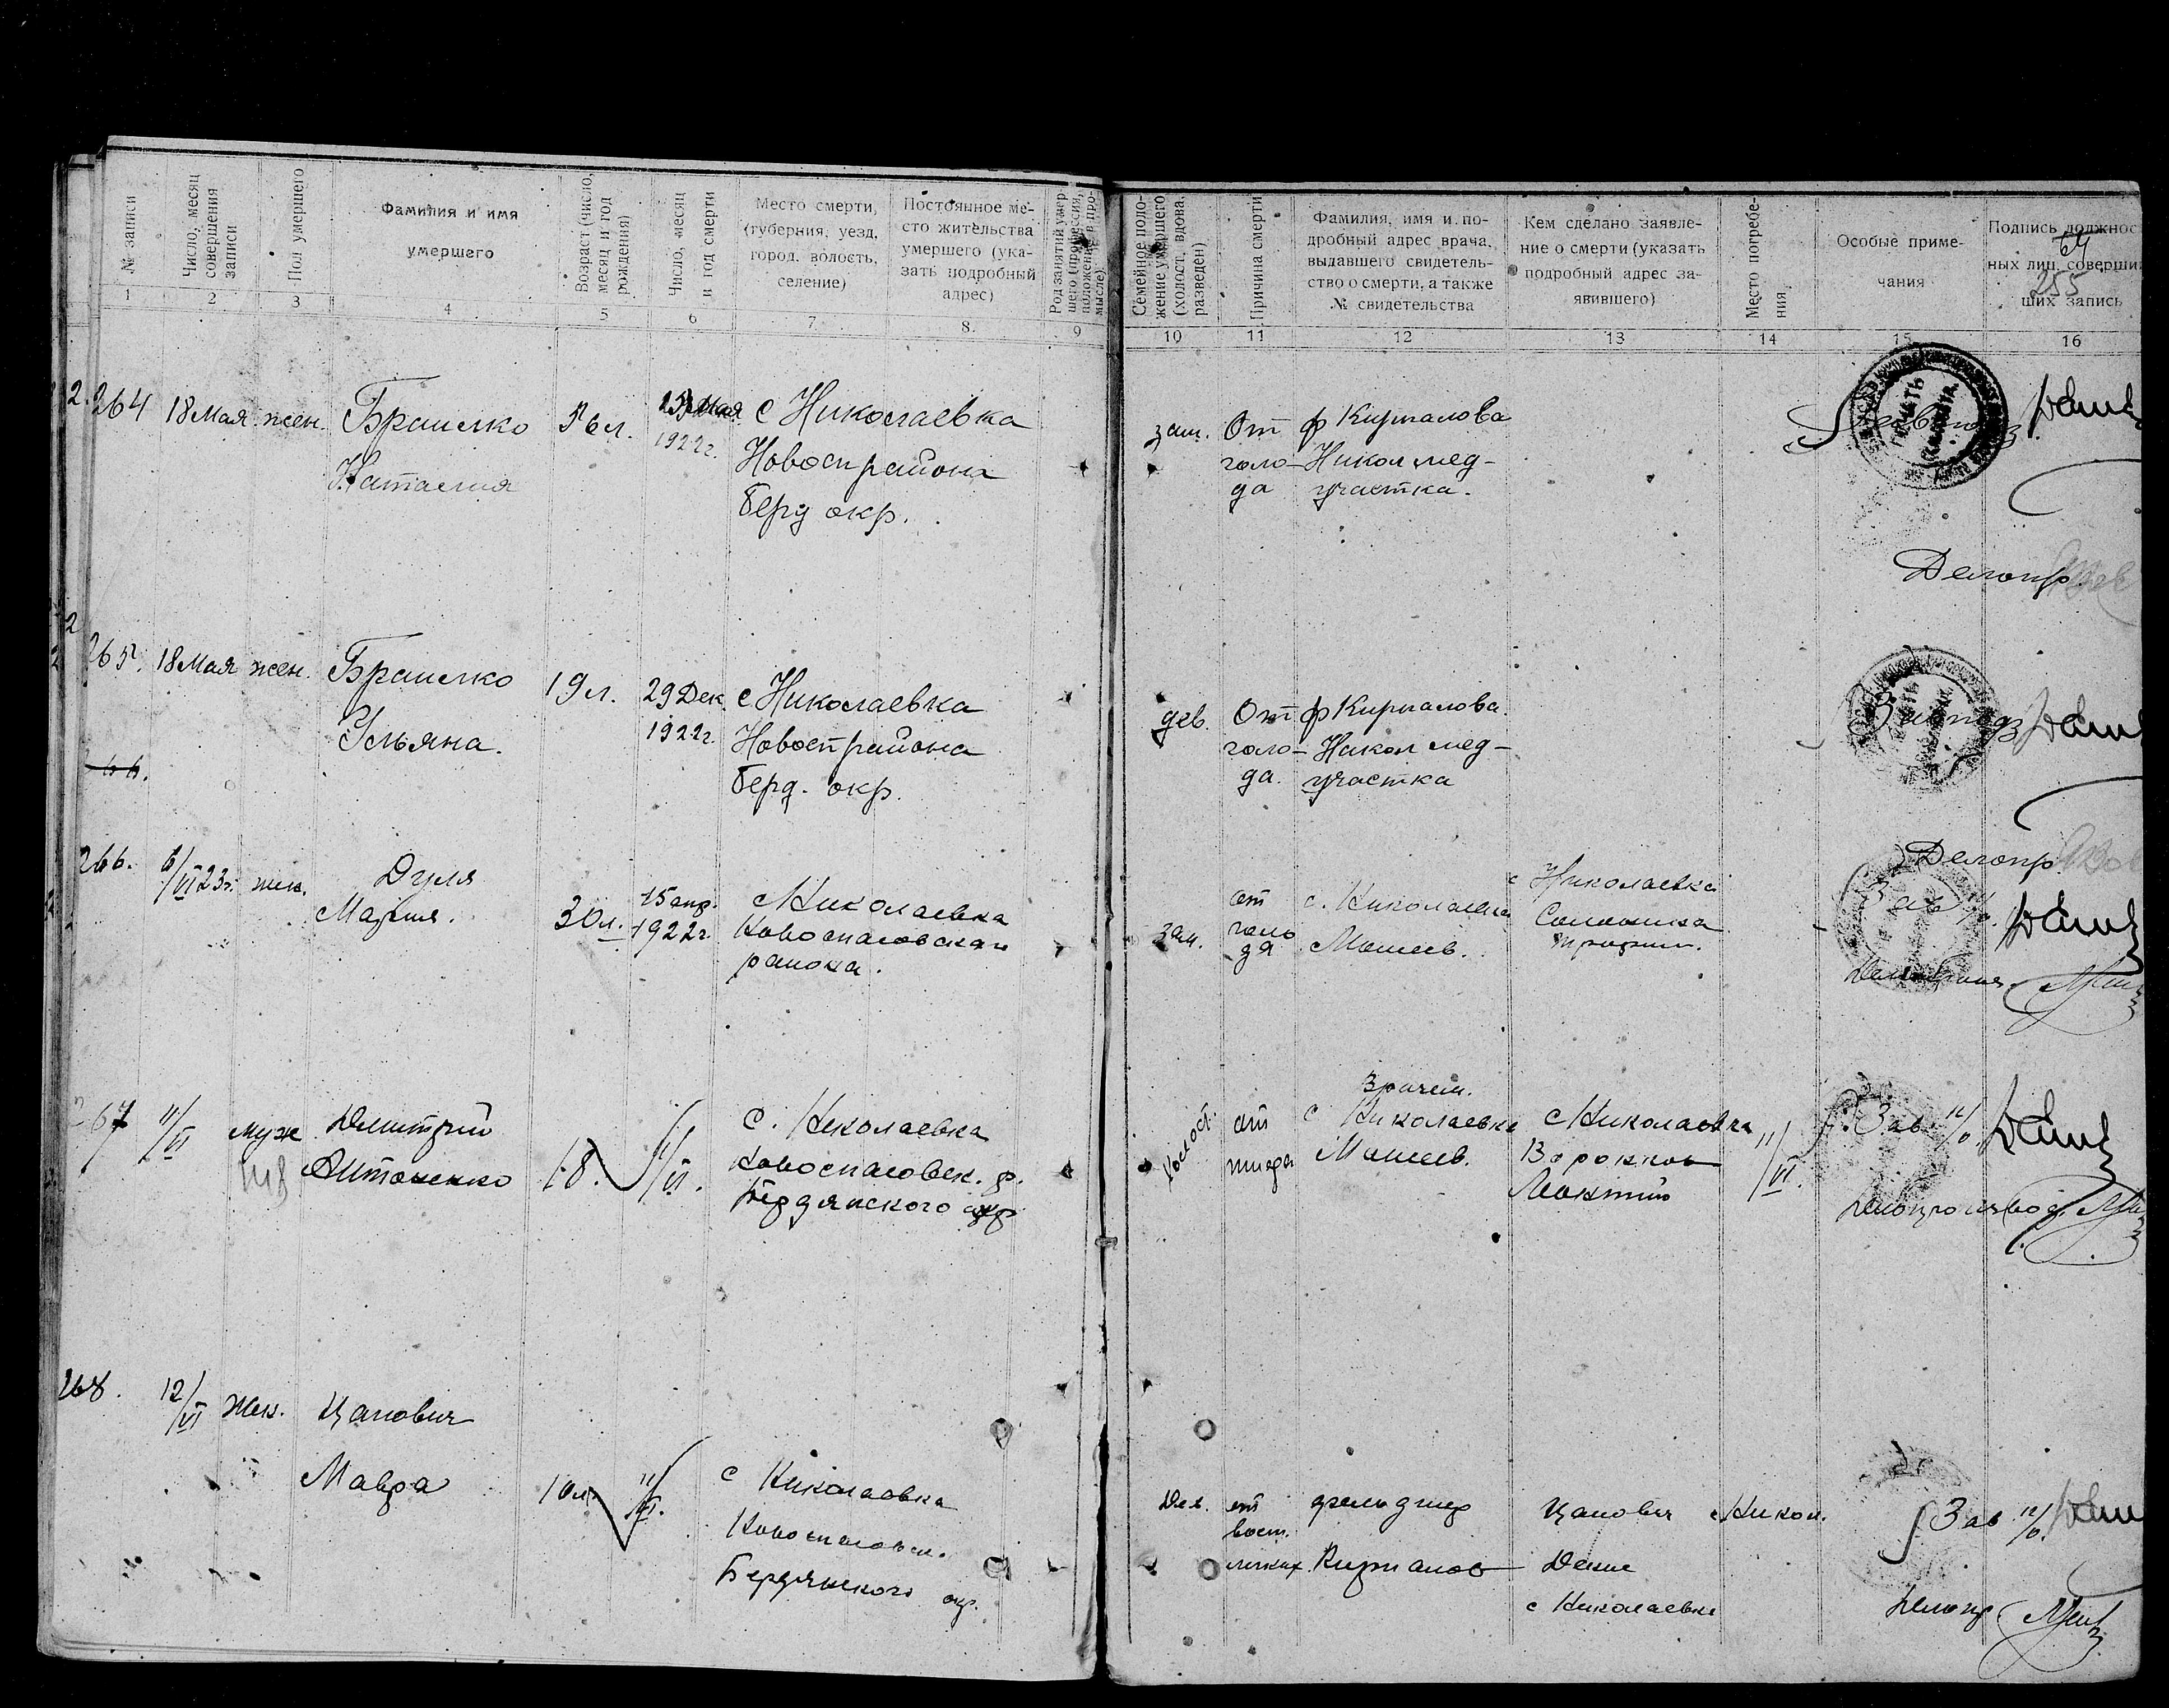 № записи
Число, месяц совершения записи
Пол умершего
Фамилия и имя умершего
Возраст (число, месяц и год рождения)
Число, месяц и год смерти
Место смерти, (губерния, уезд, город, волость, селение)
Постоянное место жительства умершего (указать подробный адрес)
Род занятий умершего (профессия, положение в промысле)
Семейное положение умершего (холост, вдова, разведен)
Причина смерти
Фамилия, имя и подробный адрес врача, выдавшего свидетельство о смерти, а также № свидетельства
Кем сделано заявление о смерти (указать подробный адрес заявившего)
Место погребения
Особые примечания
Подпись должностных лиц, совершивших запись
64
255
1 2 3 4 5 6 7 8 9 10 11 12 13 14 15 16
264 18 Мая жен. Браилко 56 л. Мая с Николаевка
Наталия 1922г. Новосп района
Берд окр.
зам. От ф Кирпалова
голо- Никол мед-
да участка.
Делопр.
265. 18 Мая жен. Браилко 19 л. 29 Дек. с Николаевка
Ульяна. 1922г. Новосп района
Берд. окр.
дев. От ф Кирпалова
голо- Никол мед-
да. участка
Делопр.
266. 6/VI 23г. жен. Дуля 30 л. 15 апр. с Николаевка
Мария. 1922г. Новоспасовская
района.
зам. от с. Николаевка с Николаевка
голо Мошев.
да
Зав
267 11/VI муж Дмитрий 18. 11/VI. с. Николаевка
Антоненко Новоспасовск. р.
Бердянского окр
Холост. от с Николаевка с Николаевка 11/VI.
тифа Мошев.
Зав
Делопроизвод.
268. 12/VI жен. Цапович
Мавра 10 л. 11/VI. с Николаевка
Новоспасовск.
Бердянского окр.
Дев. от фельдшер Цапович Никол.
восп.
легких Кирпалов Дение
с Николаевка
Зав
Делопр